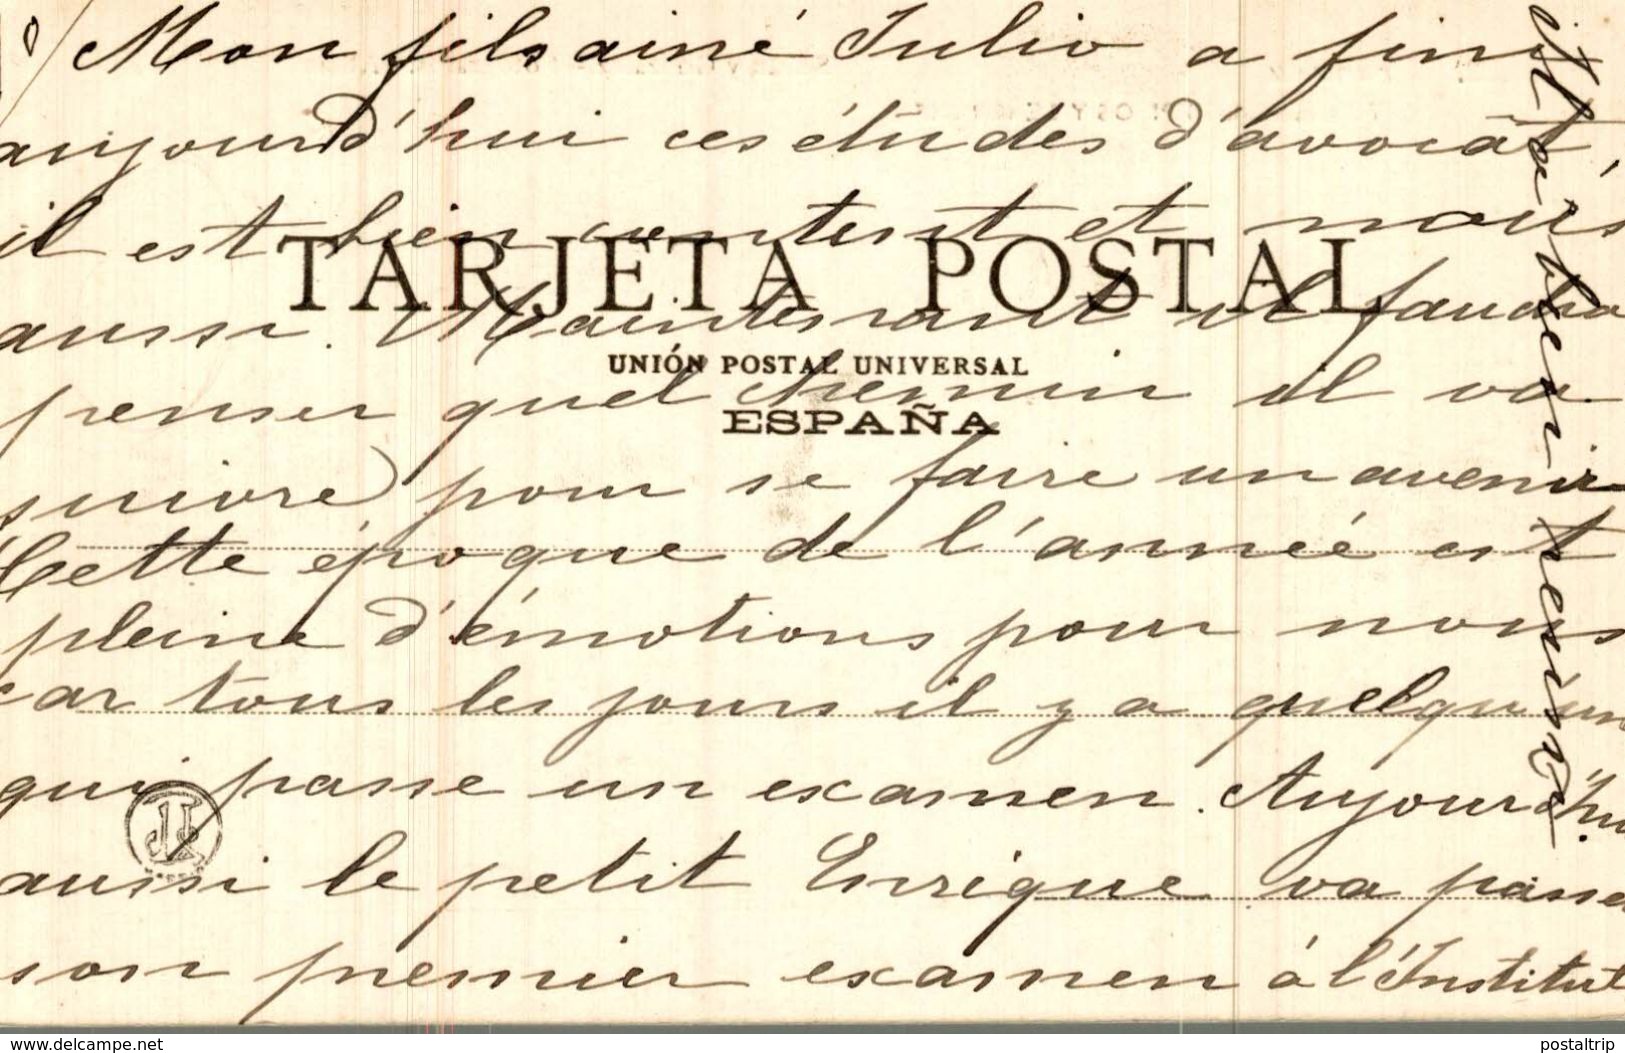 Mon fils ainé Julio a fini
aujourd'hui ces études d'avocat,
il est bien content et nous
TARJETA POSTAL
aussi. Maintenant il faudra
UNIÓN POSTAL UNIVERSAL
penser quel chemin il va
ESPAÑA
suivre pour se faire un avenir
Cette époque de l'année est
pleine d'émotions pour nous
car tous les jours il y a quelqu'un
qui passe un examen. Aujourd'hui
aussi le petit Enrique va passer
son premier examen á l'Institut
il a bien reussi.
www.delcampe.net
postaltrip